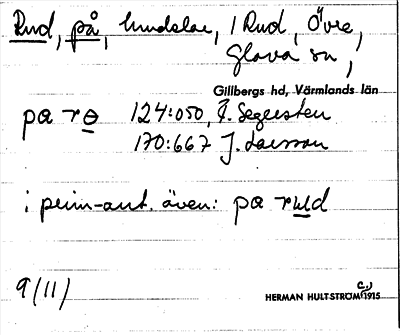 Rud, på, hundslar, / Rud, Övre,
Glava sn,
Gillbergs hd, Värmlands län
pa rɵ 124:050, T. Segersten
170:667 J. Larsson
i prim-ant. även: pa rud
9/11)
HERMAN HULTSTRÖM 1915